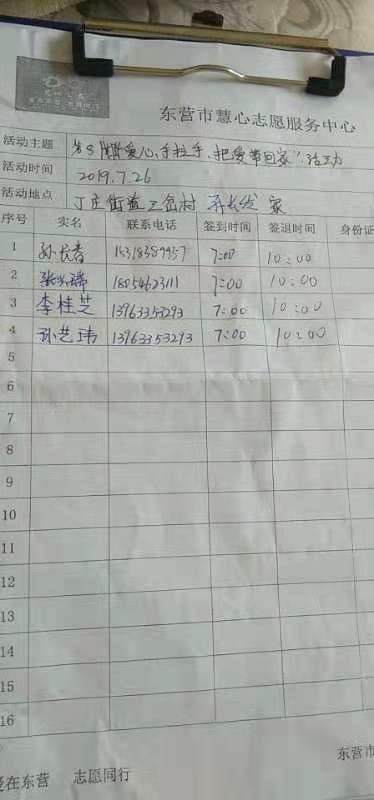 东营市慧心志愿服务中心
活动主题 爱心,手拉手,把爱带回家"活动
活动时间 2019.7.26
活动地点 丁庄街道三岔村 家
序号 实名 联系电话 签到时间 签退时间 身份证
1 孙长香 7:00 10:00
2 张兴瑞 18054623111 7:00 10:00
3 李桂芝 13963353293 7:00 10:00
4 孙艺玮 13963353293 7:00 10:00
5
6
7
8
9
10
11
12
13
14
15
16
东营市
爱在东营 志愿同行